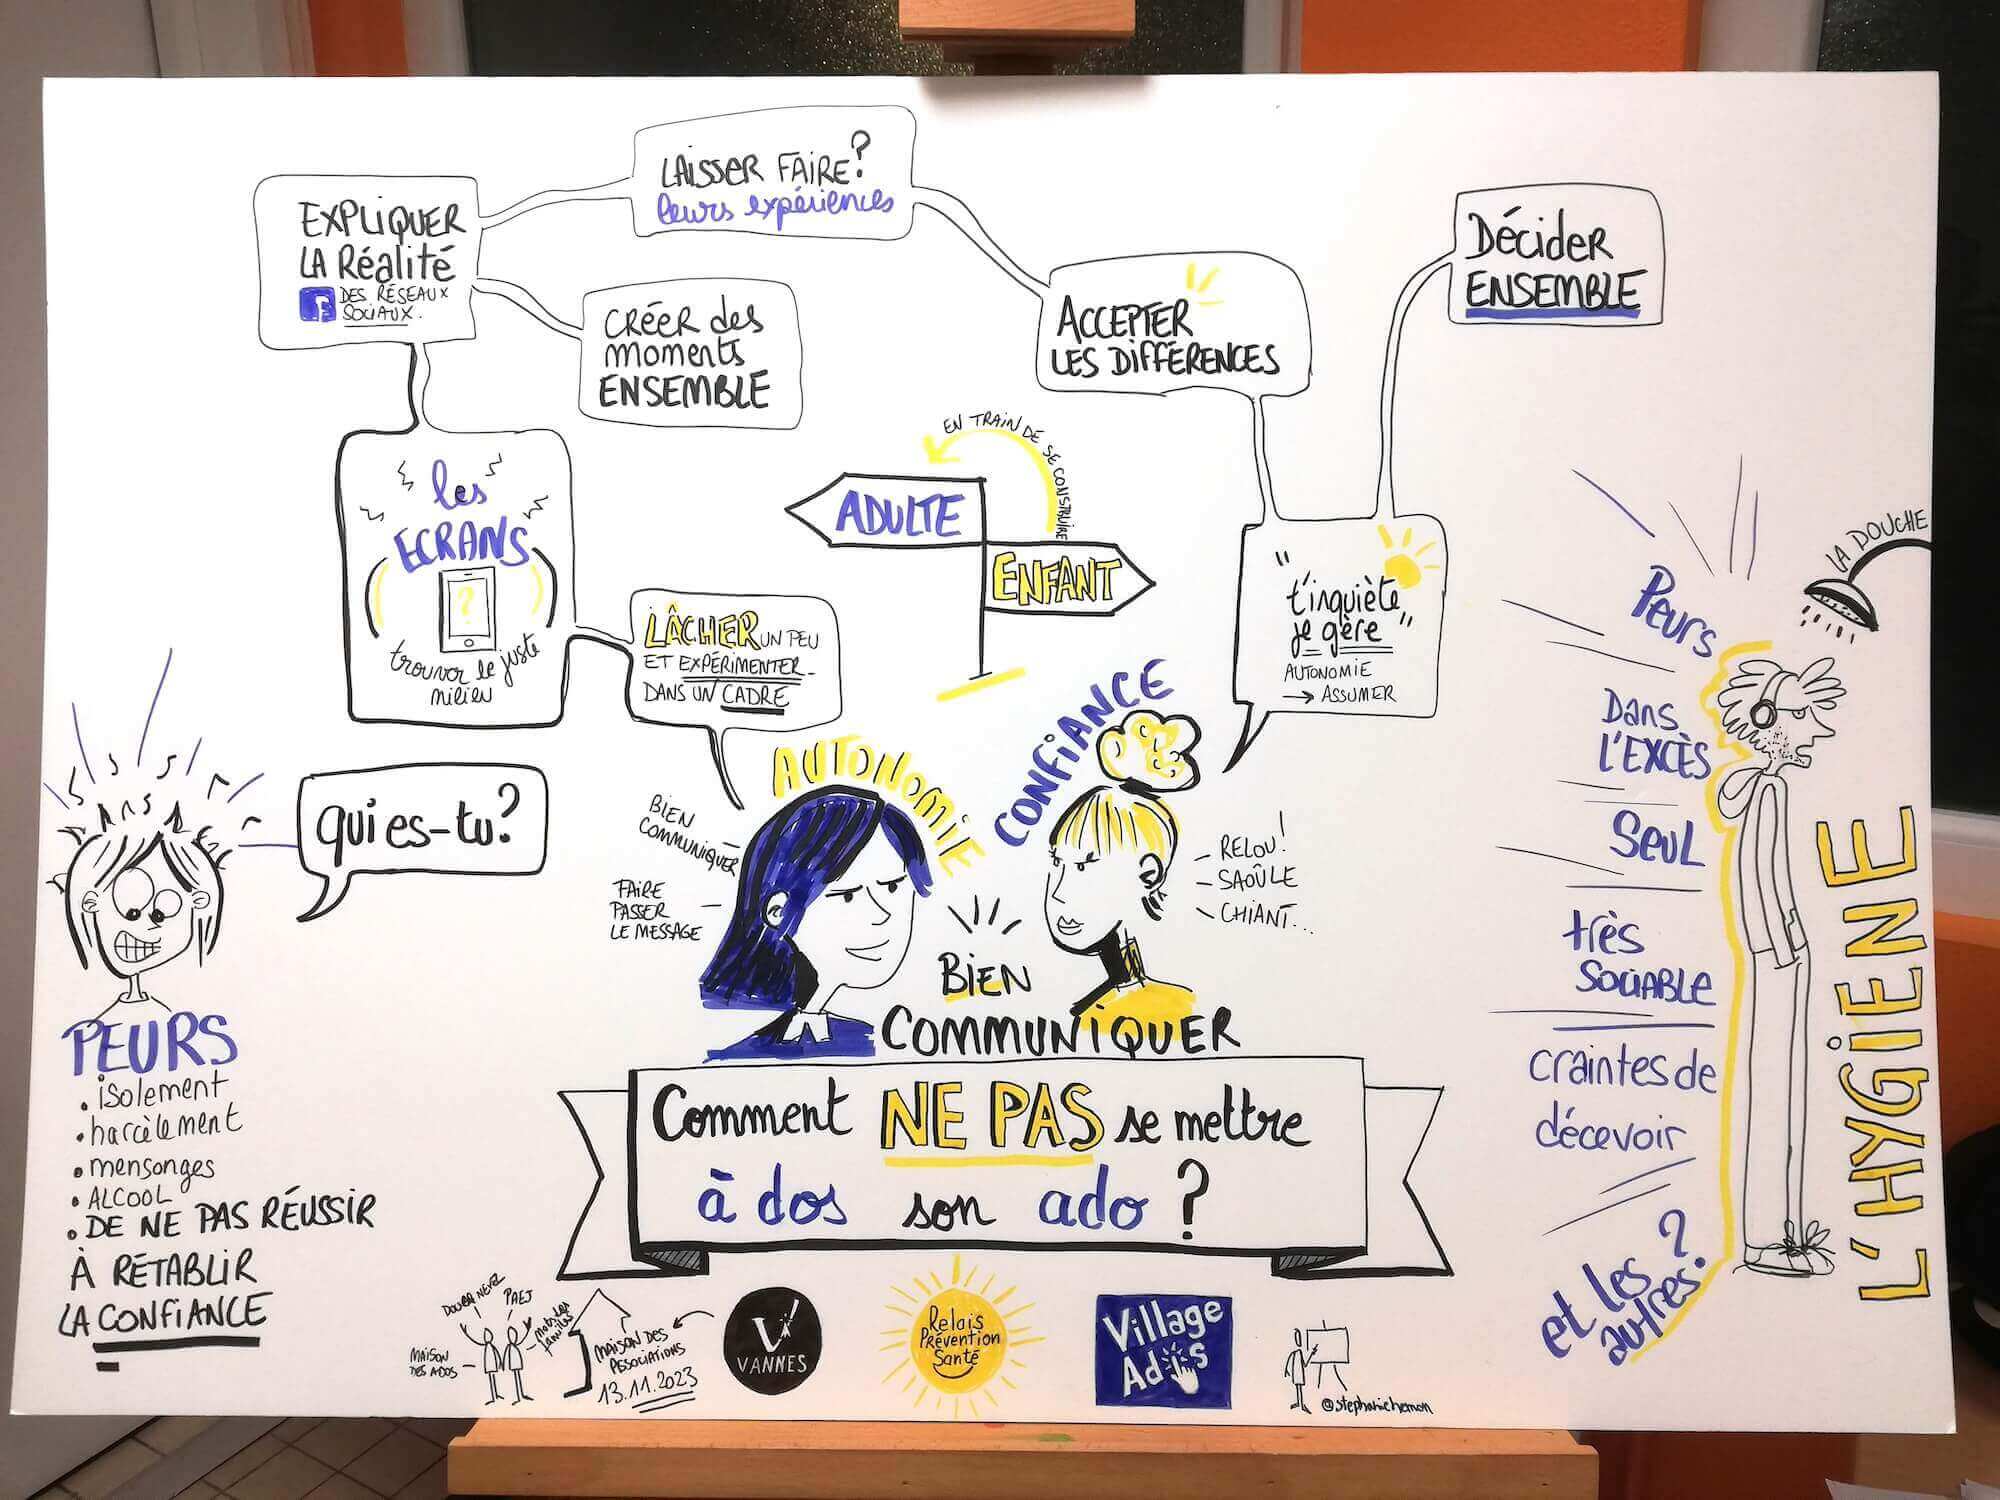 EXPLIQUER
LA Réalité
f DES RÉSEAUX
SOCIAUX.
LAISSER FAIRE?
leurs expériences
CRÉER des
moments
ENSEMBLE
ACCEPTER
LES DIFFÉRENCES
Décider
ENSEMBLE
les
ECRANS
?
trouver le juste
milieu
LÂCHER UN PEU
ET EXPÉRIMENTER
DANS UN CADRE
EN TRAIN DE SE CONSTRUIRE
ADULTE
ENFANT
"t'inquiète
je gère"
AUTONOMIE
→ ASSUMER
qui es-tu?
PEURS
. isolement
. harcèlement
. mensonges
. ALCOOL
. DE NE PAS RÉUSSIR
À RÉTABLIR
LA CONFIANCE
BIEN
COMMUNIQUER
FAIRE
PASSER
LE MESSAGE
AUTONOMIE
CONFIANCE
- RELOU!
- SAOÛLE
- CHIANT...
BIEN
COMMUNIQUER
Comment NE PAS se mettre
à dos son ado ?
LA DOUCHE
Peurs
Dans
L'EXCÈS
SEUL
très
SOCIABLE
craintes de
décevoir
et les
autres?
L'HYGIENE
MAISON
DES ADOS
PAEJ
MAISON DES
ASSOCIATIONS
13.11.2023
V
VANNES
Relais
Prévention
Santé
Village
Ados
@stephaniehemon